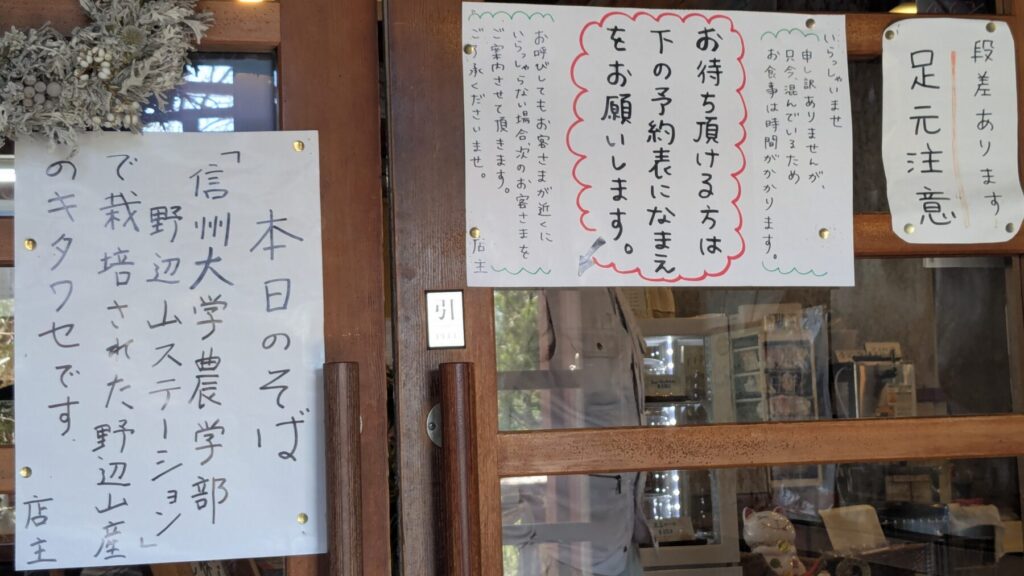 本日のそば
「信州大学農学部
野辺山ステーション」
で栽培された野辺山産
のキタワセです.
店主
いらっしゃいませ
申し訳ありませんが、
只今混んでいるため
お食事は時間がかかります。
お待ち頂ける方は
下の予約表になまえ
をお願いします。
お呼びしてもお客さまが近くに
いらっしゃらない場合、次のお客さまを
ご案内させて頂きます。
ご了承くださいませ。
店主
段差あります
足元注意
引